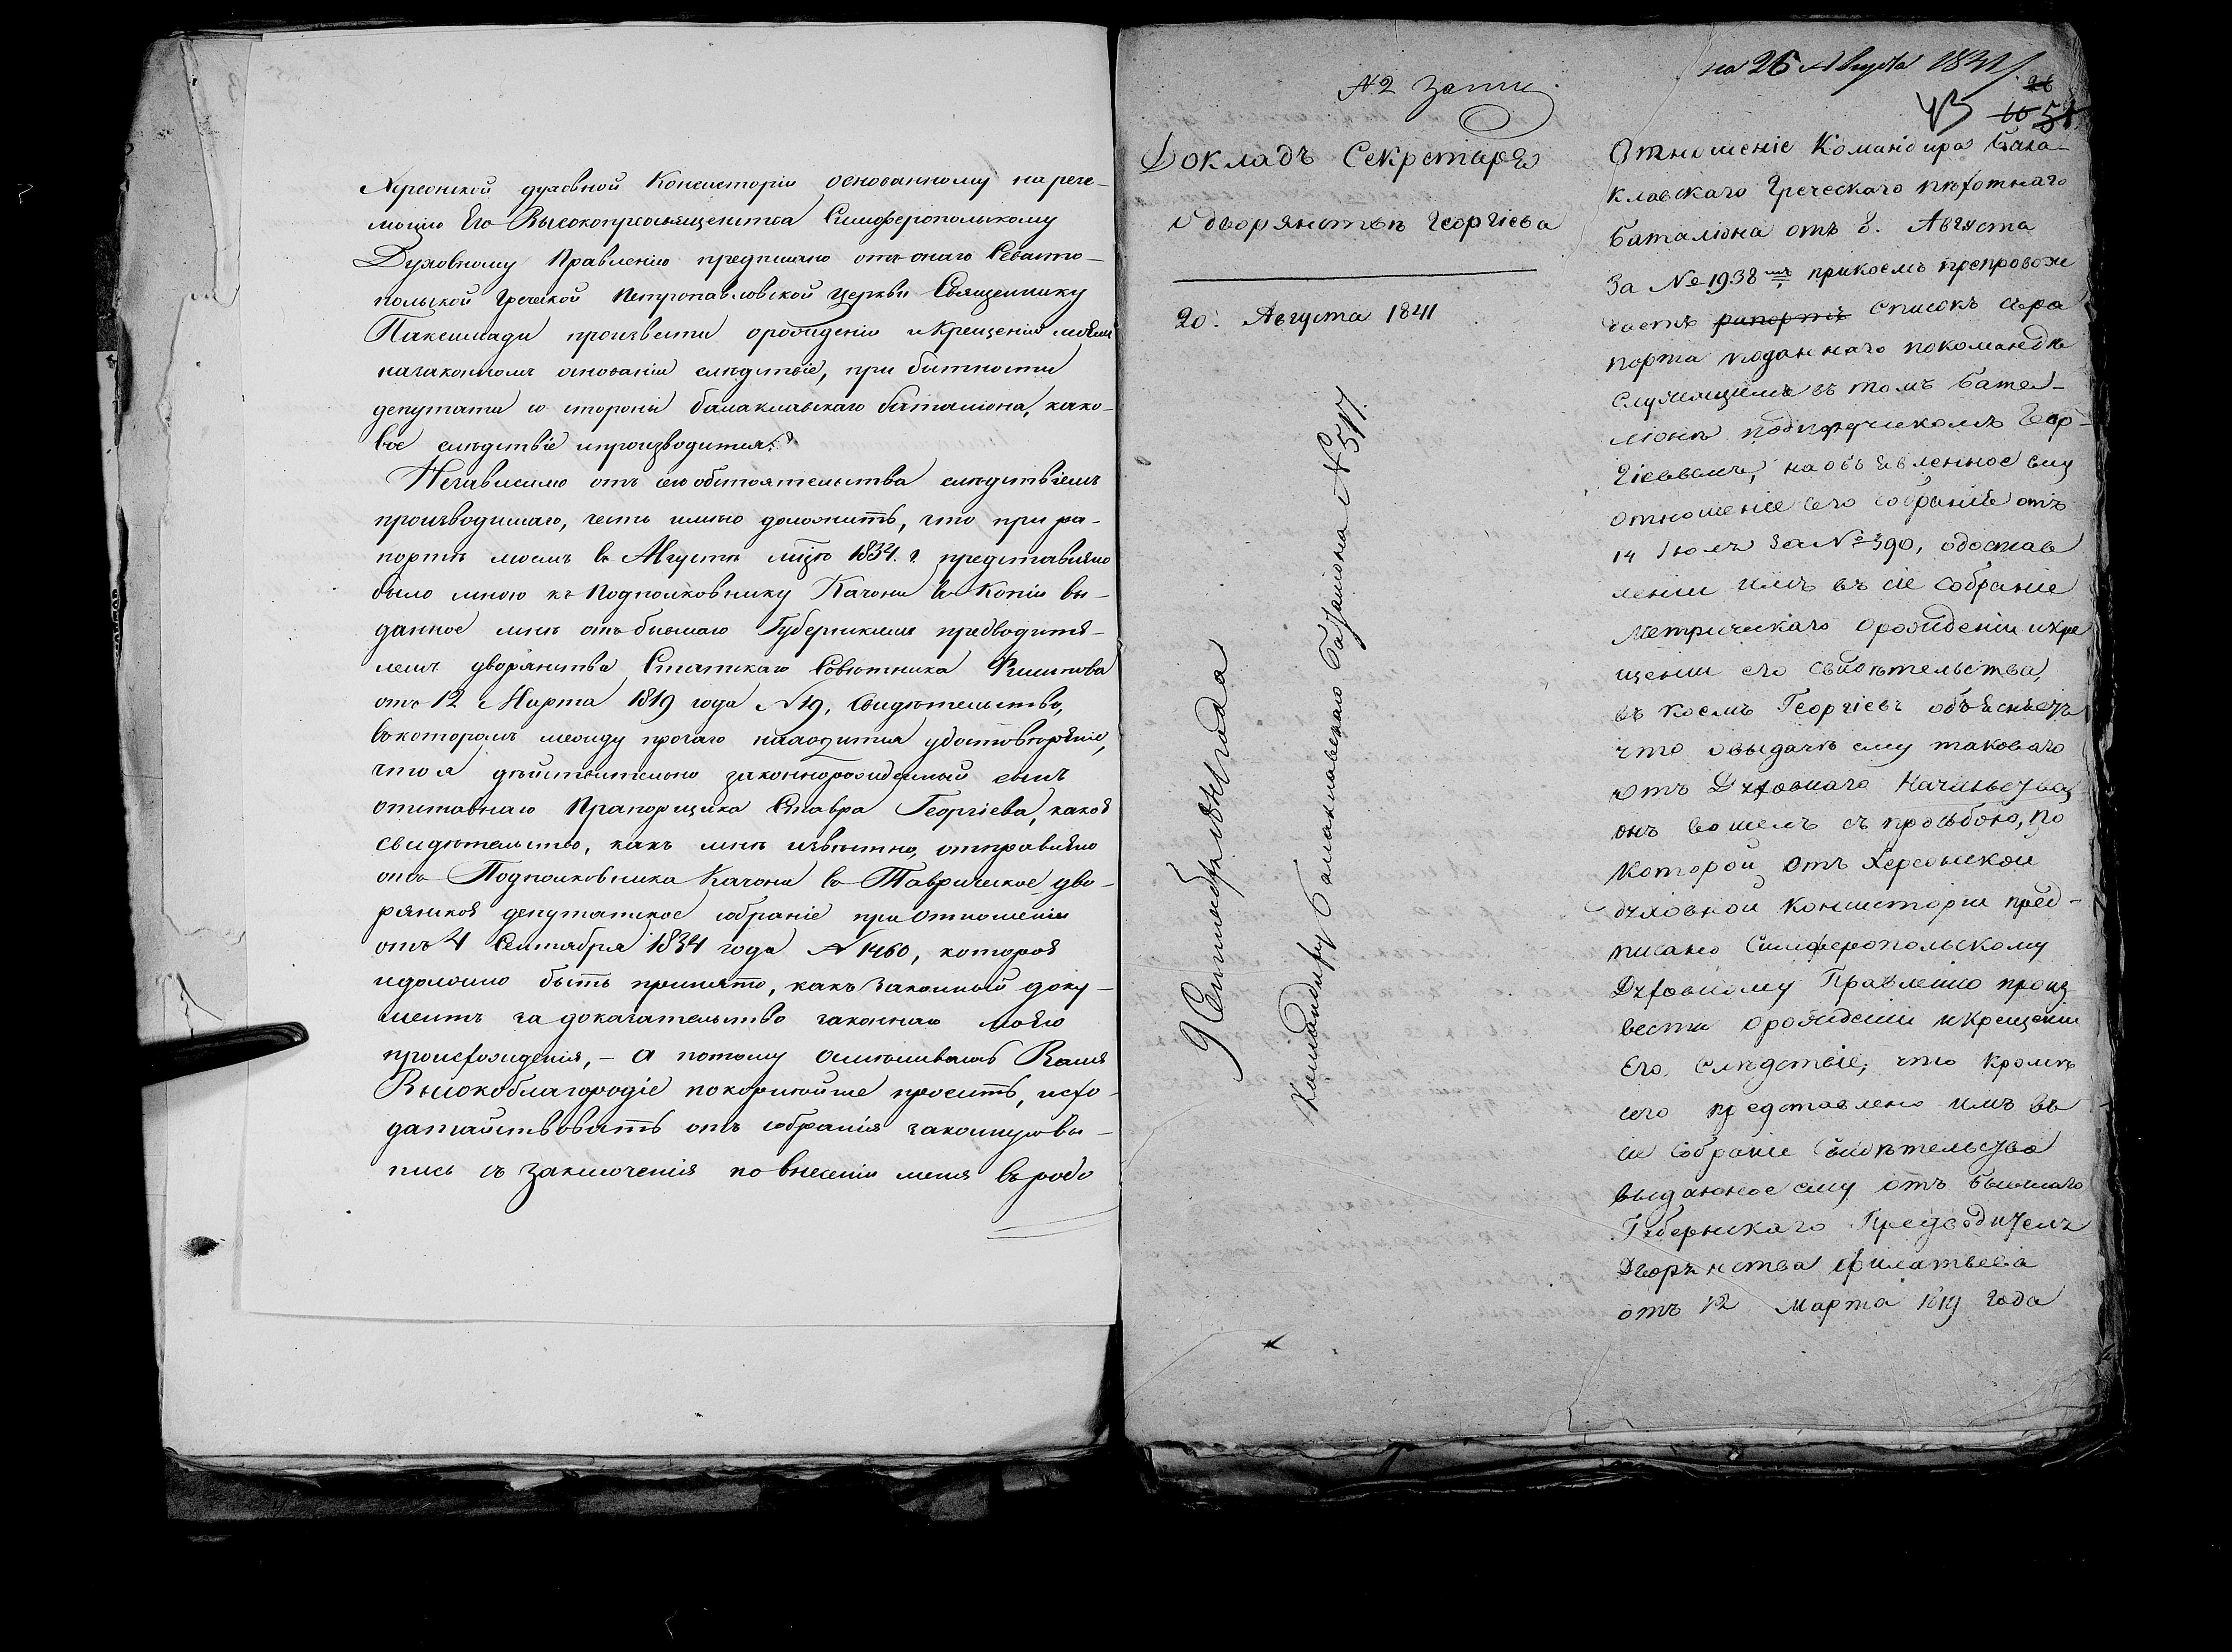 Херсонской духовной Консисторіи основанному на резо-
люціи Его Высокопреосвященства Симферопольскому
Духовному Правленію предписано отъ онаго Севасто-
польской Греческой Петропавловской Церкви Священнику
Паксимади произвести о рожденіи и крещеніи моемъ
на законномъ основаніи слѣдствіе, при бытности
депутата со стороны балаклавскаго баталіона, како-
вое слѣдствіе и производится.
Независимо отъ сего обстоятельства слѣдствіемъ
производимаго, честь имѣю доложить, что при ра-
портѣ моемъ в Августѣ мцѣ 1834. г. представлено
было мною къ Подполковнику Качони в Копіи вы-
данное мнѣ отъ бывшаго Губернскимъ предводите-
лемъ дворянства Статскаго Совѣтника
отъ 12 Марта 1819 года №19, Свидѣтельство,
в которомъ между прочаго находится удостовѣреніе,
что я дѣйствительно законнорожденный сынъ
отставнаго Прапорщика Ставра Георгіева, какое
свидѣтельство, какъ мнѣ извѣстно, отправлено
отъ Подполковника Качони в Таврическое дво-
рянское депутатское собраніе при отношеніи
отъ 4 Сентября 1834 года №1460, которое
и должно быть принято, какъ законный доку-
ментъ за доказательство законнаго моего
происхожденія, - а потому осмѣливаюсь Ваше
Высокоблагородіе покорнѣйше просить, исхо-
датайствовать отъ собранія законную вы-
пись съ заключенія по внесеніи меня въ родо
№2 запи.
Докладъ Секретаря
о дворянствѣ Георгіева
20. Августа 1841
9 Сентября 1841 года
Командиру Балаклавского Баталіона №517.
на 26 Августа 1841
43
26
51
Отношеніе Командира Бала-
клавскаго Греческаго пѣхотнаго
баталіона отъ 8. Августа
За №1938мъ при коемъ препровож
даетъ рапортъ списокъ съ ра
порта поданнаго по командѣ
служащимъ въ томъ батал-
ліонѣ подпоручикомъ Геор-
гіевымъ, на объявленное ему
отношеніе сего собранія отъ
14 Іюля за №390, о достав
леніи имъ въ сіе собраніе
метрическаго о рожденіи и кре
щеніи его свидѣтельства,
въ коемъ Георгіевъ объясняетъ
что о выдачѣ ему таковаго
отъ Духовнаго Начальства
онъ вошелъ съ просьбою, по
которой отъ Херсонской
духовной консисторіи пред-
писано Симферопольскому
Духовному Правленію произ
вести о рожденіи и крещеніи
Его, слѣдствіе, что кромѣ
сего представлено имъ въ
сіе собраніе Свидѣтельство
выданное ему отъ бывшаго
Губернскаго Предводителя
Дворянства Филатьева
отъ 12 Марта 1819 года